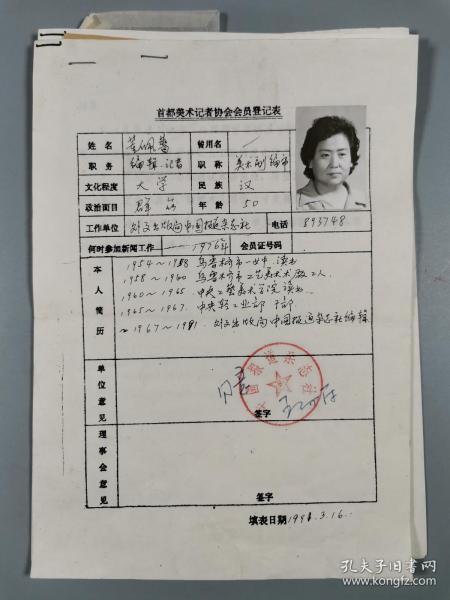 首都美术记者协会会员登记表
姓名 董佩 曾用名 /
职务 编辑.记者 职称 美术副编审
文化程度 大学 民族 汉
政治面目 群众 年龄 50
工作单位 外文出版局中国报道杂志社 电话 893748
何时参加新闻工作 1976年 会员证号码
本人简历
1954～1958 乌鲁木齐市一女中 读书
1958～1960 乌鲁木齐市工艺美术厂 工人
1960～1965 中央工艺美术学院 读书
1965～1967 中央轻工业部 干部
～1967～1981 外文出版局中国报道杂志社编辑
单位意见
同意
中国报道杂志社
签字
理事会意见
签字
填表日期1991.3.16.
孔夫子旧书网
www.kongfz.com